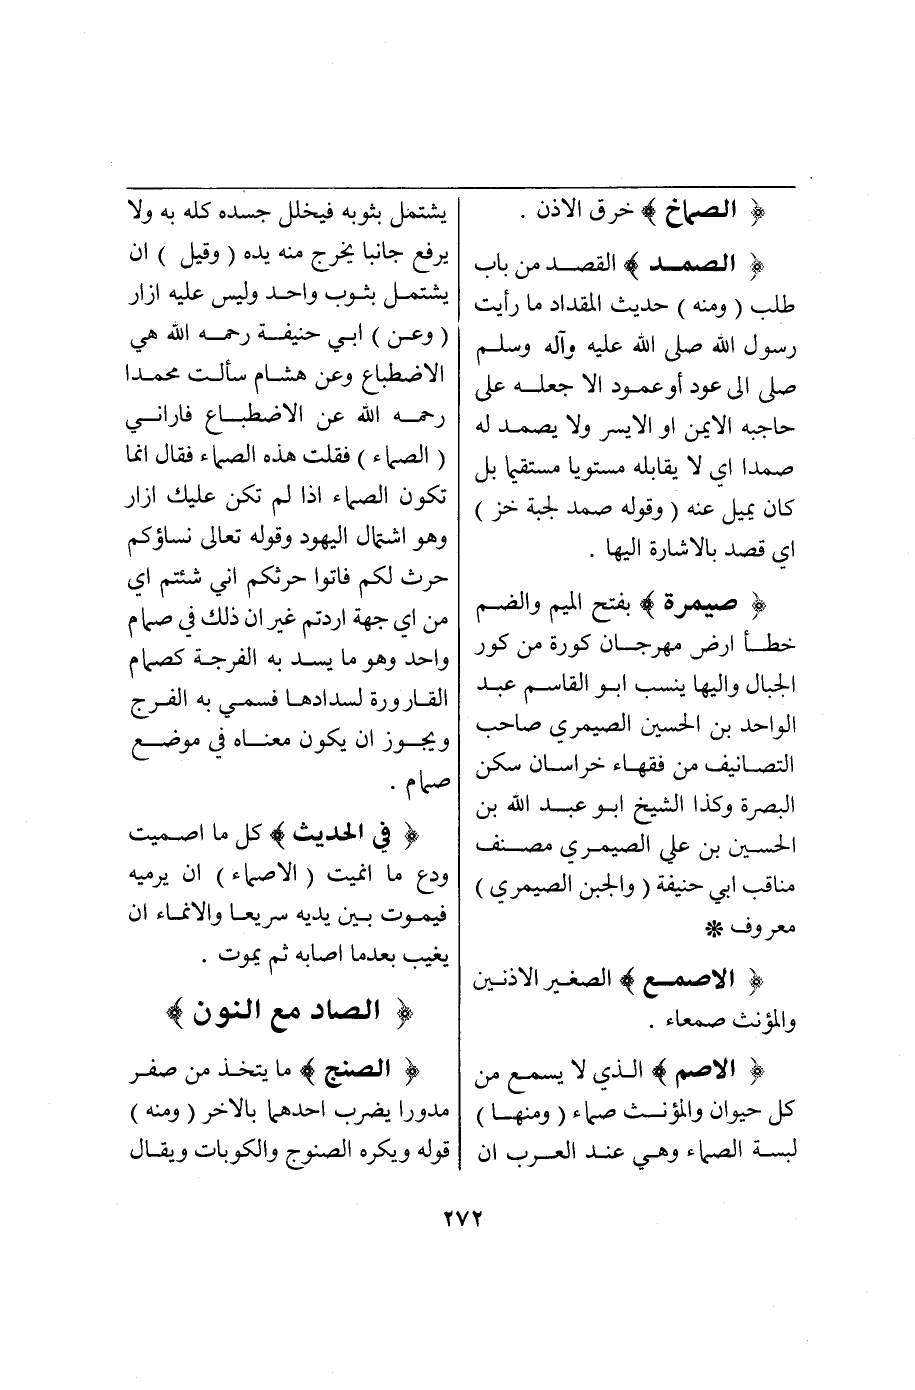 ﴿ الصماخ ﴾ خرق الاذن .
﴿ الصمد ﴾ القصد من باب
طلب ( ومنه ) حديث المقداد ما رأيت
رسول الله صلى الله عليه وآله وسلم
صلى الى عود أو عمود الا جعله على
حاجبه الايمن او الايسر ولا يصمد له
صمدا اي لا يقابله مستويا مستقيما بل
كان يميل عنه ( وقوله صمد لجبة خز )
اي قصد بالاشارة اليها .
﴿ صيمرة ﴾ بفتح الميم والضم
خطأ ارض مهرجان كورة من كور
الجبال واليها ينسب ابو القاسم عبد
الواحد بن الحسين الصيمري صاحب
التصانيف من فقهاء خراسان سكن
البصرة وكذا الشيخ ابو عبد الله بن
الحسين بن على الصيمري مصنف
مناقب ابي حنيفة ( والجبن الصيمري )
معروف *
﴿ الاصمع ﴾ الصغير الاذنين
والمؤنث صمعاء .
﴿ الاصم ﴾ الذي لا يسمع من
كل حيوان والمؤنث صماء ( ومنها )
لبسة الصماء وهي عند العرب ان
يشتمل بثوبه فيخلل جسده كله به ولا
يرفع جانبا يخرج منه يده ( وقيل ) ان
يشتمل بثوب واحد وليس عليه ازار
( وعن ) ابي حنيفة رحمه الله هي
الاضطباع وعن هشام سألت محمدا
رحمه الله عن الاضطباع فاراني
( الصماء ) فقلت هذه الصماء فقال انما
تكون الصماء اذا لم تكن عليك ازار
وهو اشتمال اليهود وقوله تعالى نساؤكم
حرث لكم فاتوا حرثكم اني شئتم اي
من اي جهة اردتم غير ان ذلك في صمام
واحد وهو ما يسد به الفرجة كصمام
القارورة لسدادها فسمي به الفرج
ويجوز ان يكون معناه في موضع
صمام .
﴿ في الحديث ﴾ كل ما اصميت
ودع ما انميت ( الاصماء ) ان يرميه
فيموت بين يديه سريعا والانماء ان
يغيب بعدما اصابه ثم يموت .
﴿ الصاد مع النون ﴾
﴿ الصنج ﴾ ما يتخذ من صفر
مدورا يضرب احدهما بالاخر ( ومنه )
قوله ويكره الصنوج والكوبات ويقال
٢٧٢